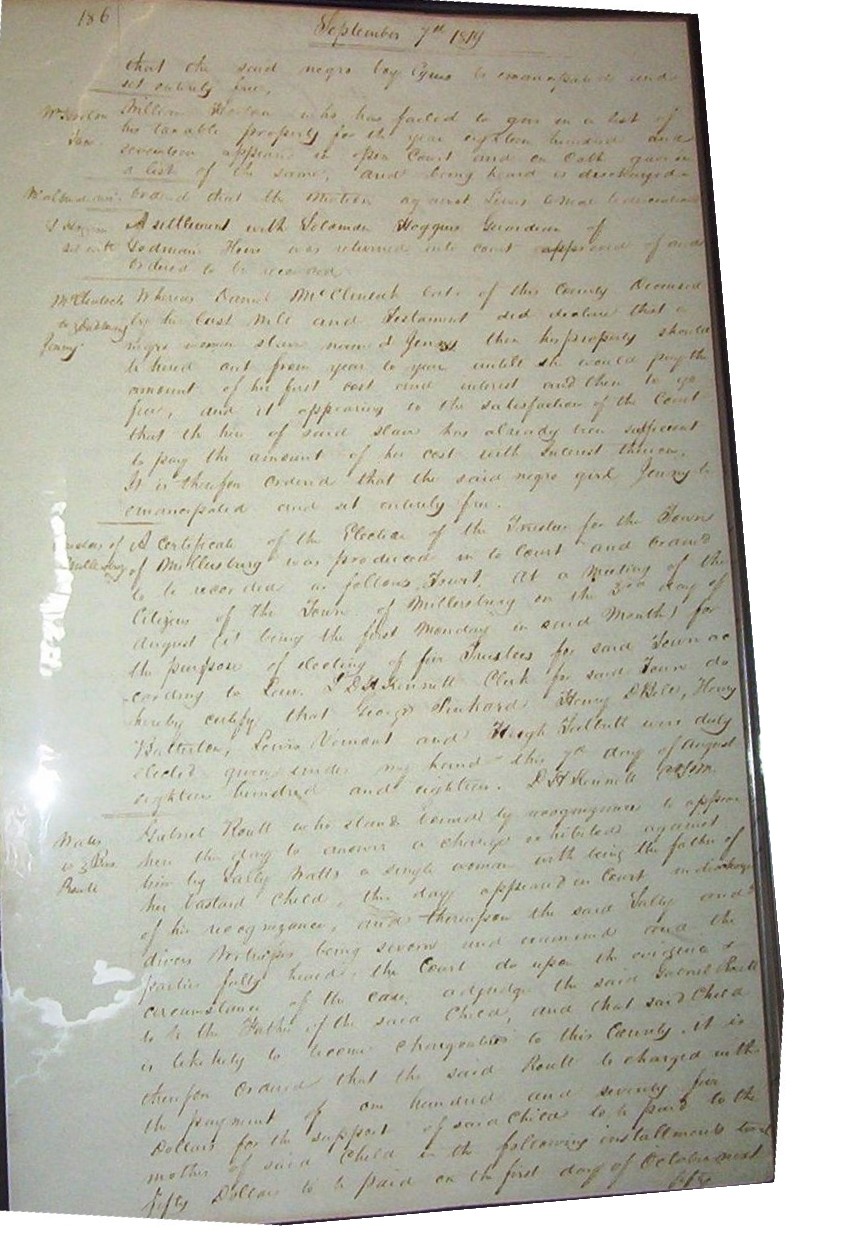 186
September 7th 1819
that the said negro boy Cyrus be emancipated and
set entirely free.
William who has failed to give in a list of
his taxable property for the year eighteen hundred and
seventeen appeared in open Court and on Oath gave in
a list of the same, and being heard is discharged
Ordered that the motion against Lewis be
A settlement with Solomon Hoggins Guardian of
was returned into court approved of and
Ordered to be recorded
McClintock
to
Jenny
Whereas Daniel McClintock late of this County Deceased
by his last Will and Testament did declare that a
negro woman slave named Jenny then his property should
be hired out from year to year untill she would pay the
amount of his first cost and interest and then to go
free, and it appearing to the satisfaction of the Court
that the hire of said slave has already been sufficient
to pay the amount of her cost with Interest thereon.
It is therefore Ordered that the said negro girl Jenny be
emancipated and set entirely free.
A Certificate of the Election of the Trustees for the Town
of Millersburg was produced in to Court and Ordered
to be recorded as follows Towit, At a meeting of the
Citizens of the Town of Millersburg on the 3rd day of
August (it being the first Monday in said Month) for
the purpose of electing of five Trustees for said Town ac
cording to Law. I D H Kennett Clerk for said Town do
hereby certify that George Henry D Bell, Henry
Batterton, Lewis Vimont and Hugh were duly
elected given under my hand this 7th day of August
eighteen hundred and eighteen. D H Kennett
Watts
vs
Routt
Gabriel Routt who stands bound by recognizance to appear
here this day to answer a charge exhibited against
him by Sally Watts a single woman with being the father of
her bastard Child, this day appeared in Court in discharge
of his recognizance, and thereupon the said Sally and
divers Witnesses being sworn and examined and the
parties fully heard, the Court do upon the evidence &
circumstance of the case, adjudge the said Gabriel Routt
to be the Father of the said Child, and that said Child
is likely to become chargeable to this County. It is
therefore Ordered that the said Routt be charged with
the payment of one hundred and seventy five
Dollars for the support of said Child to be paid to the
mother of said Child in the following installments towit
fifty Dollars to be paid on the first day of October next
fifty